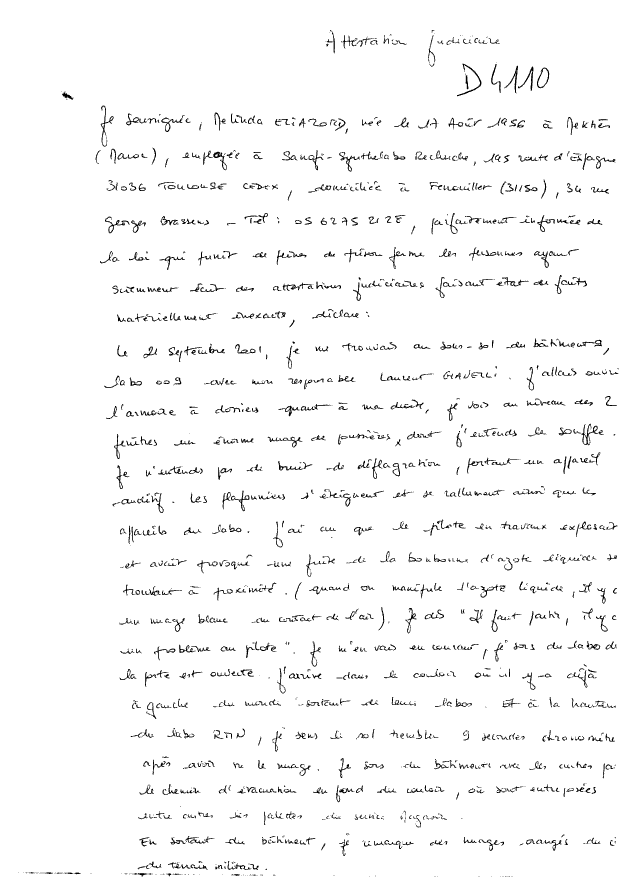 Attestation judiciaire
D4110
Je soussignée, Melinda ELIAZORD, née le 17 Août 1956 à Meknès
(Maroc), employée à Sanofi-Synthelabo Recherche, 195 route d'Espagne
31036 TOULOUSE CEDEX, domiciliée à Fenouillet (31150), 34 rue
Georges Brassens - Tél : 05 6275 21 28, parfaitement informée de
la loi qui punit de peines de prison ferme les personnes ayant
sciemment écrit des attestations judiciaires faisant état de faits
matériellement inexacts, déclare :
Le 21 Septembre 2001, je me trouvais au sous-sol du bâtiment 9,
labo 009 avec mon responsable Laurent GIAVELLI. J'allais ouvri
l'armoire à dossiers quant à ma droite, je vois au niveau des 2
fenêtres un énorme nuage de poussières, dont j'entends le souffle.
Je n'entends pas de bruit de déflagration, portant un appareil
auditif. Les plafonniers s'éteignent et se rallument ainsi que les
appareils du labo. J'ai cru que le pilote en travaux explosait
et avait provoqué une fuite de la bonbonne d'azote liquide se
trouvant à proximité. (quand on manipule l'azote liquide, il y a
un nuage blanc au contact de l'air). Je dis "Il faut partir, il y a
un problème au pilote". Je m'en vais en courant, je sors du labo do
la porte est ouverte. J'arrive dans le couloir où il y a déjà
à gauche du monde sortant de leurs labos. Et à la hauteur
du labo RMN, je sens le sol trembler 9 secondes chronométré
après avoir vu le nuage. Je sors du bâtiment avec les autres pa
le chemin d'évacuation en fond du couloir, où sont entreposées
entre autres les palettes du service Magasin.
En sortant du bâtiment, je remarque des nuages orangés du c
du terrain militaire.